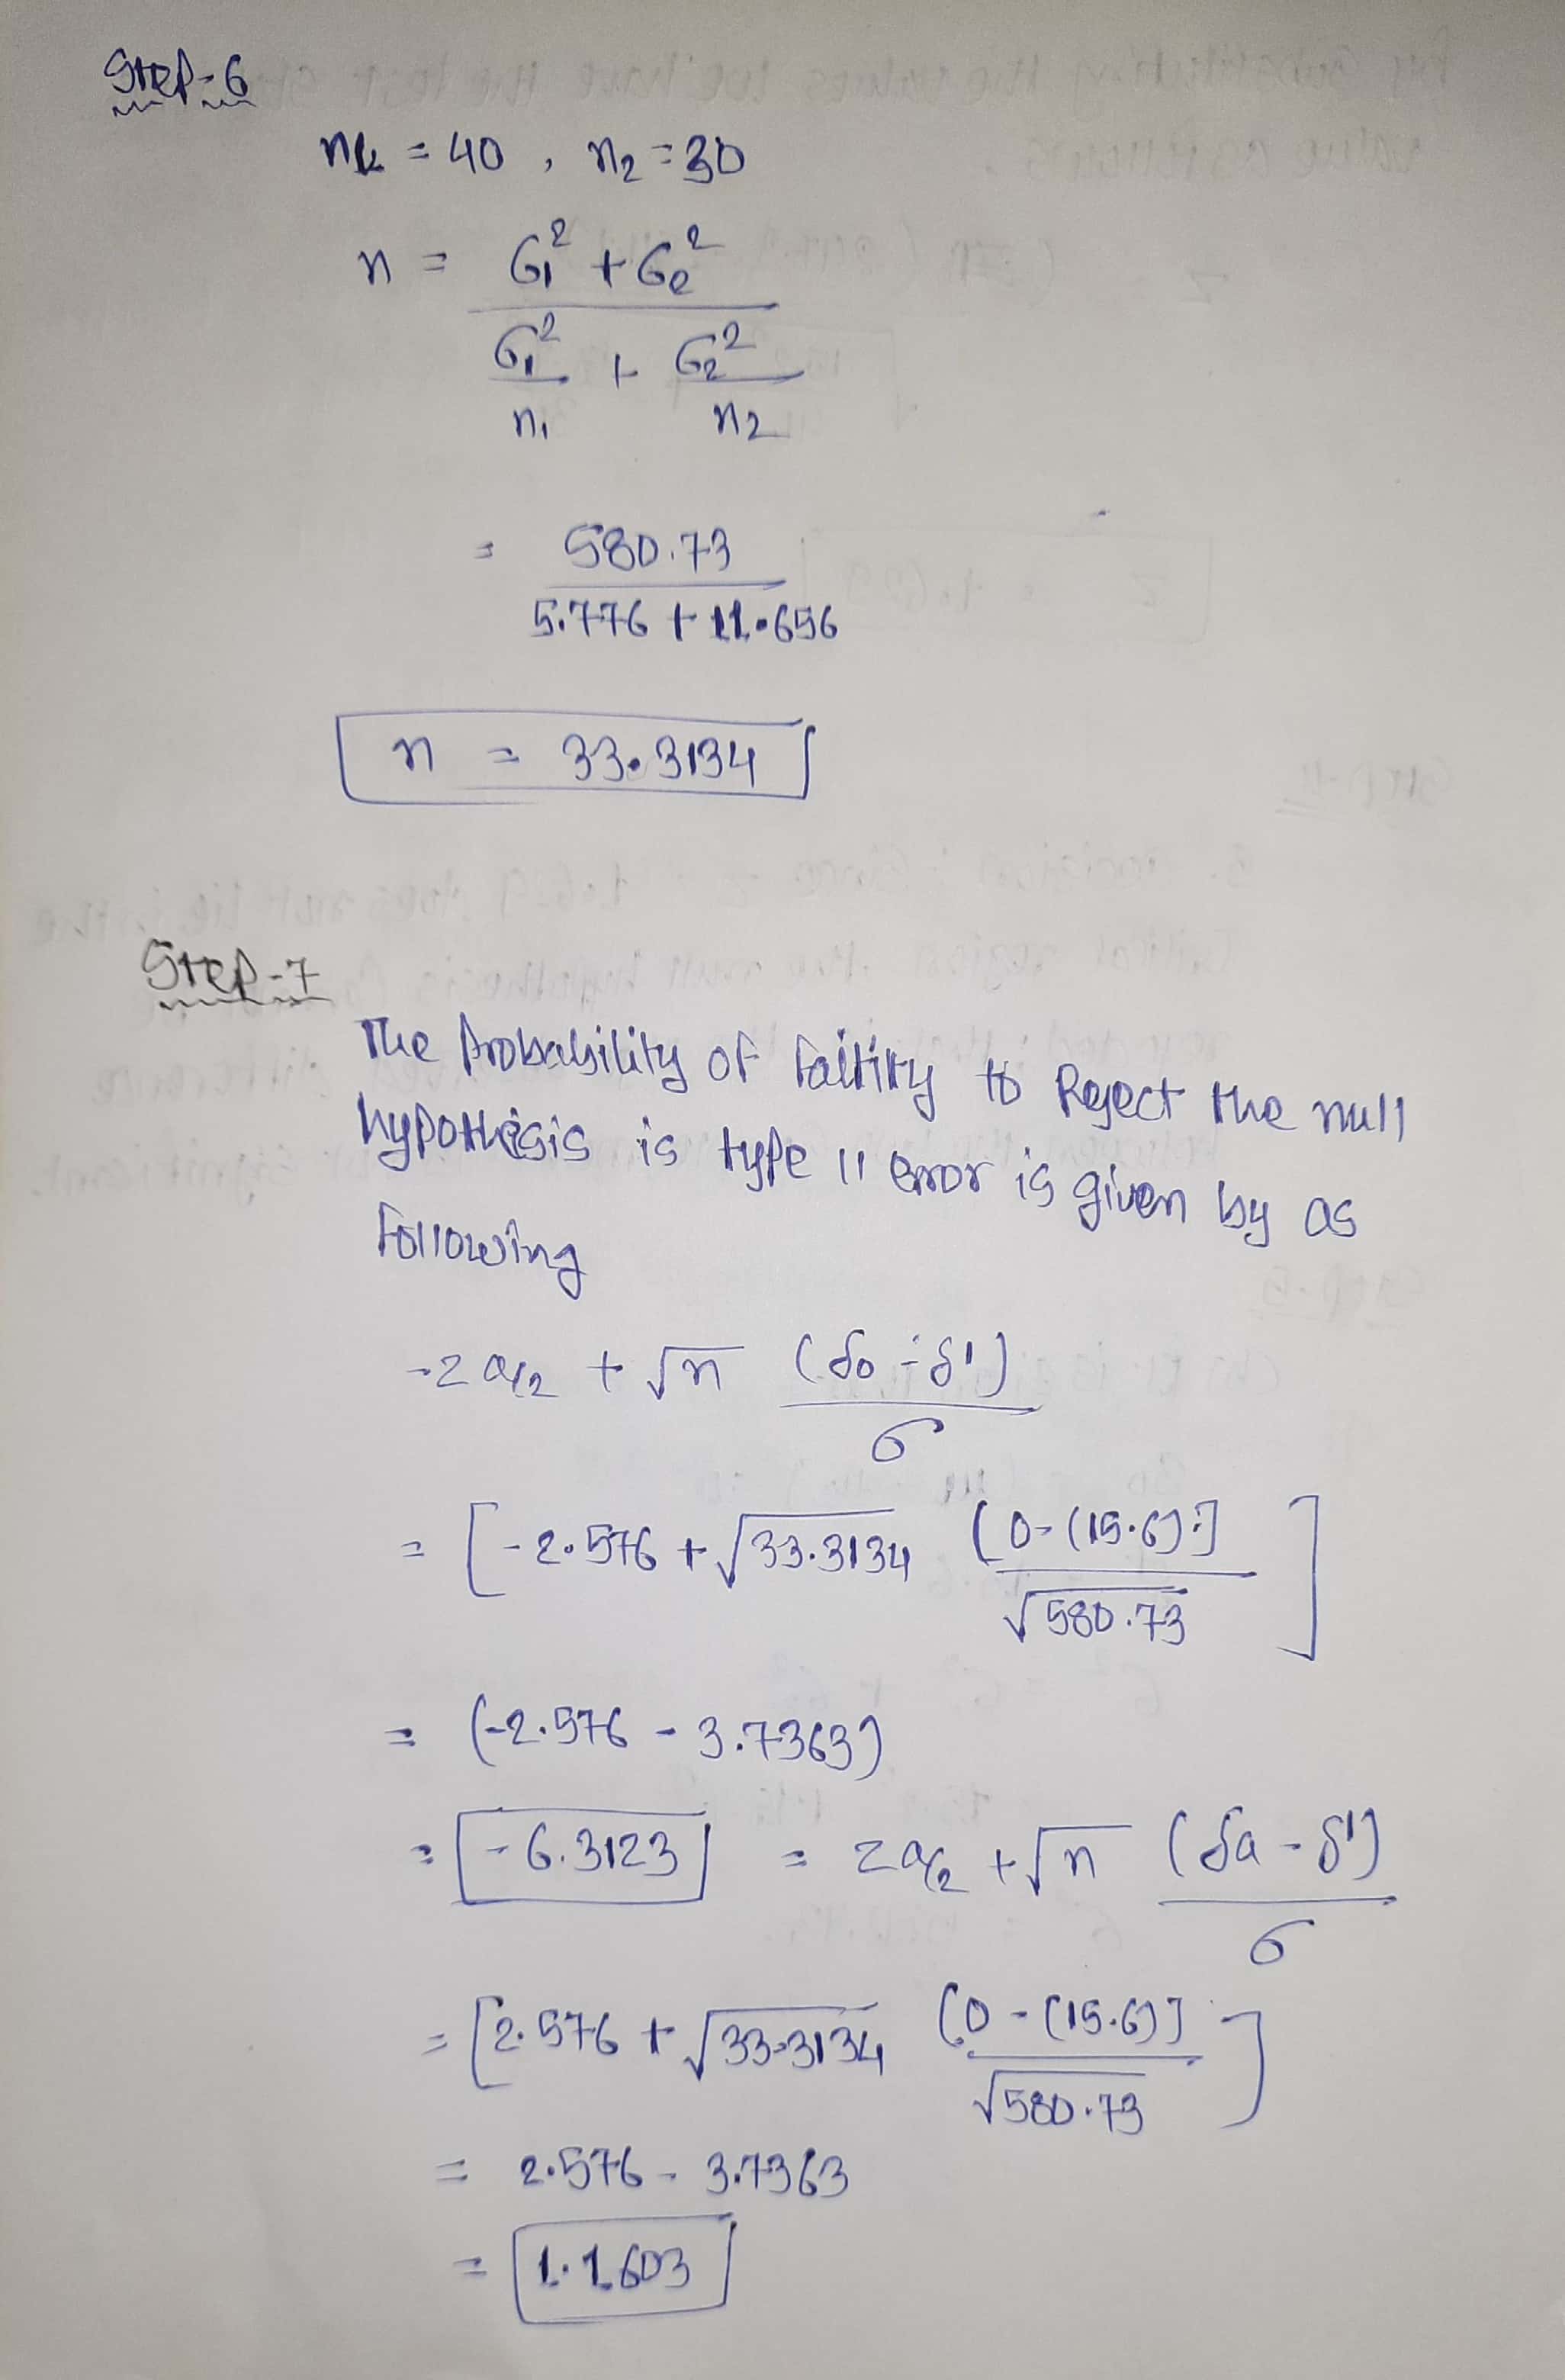 Step-6
n1 = 40 , n2 = 30
n = σ1² + σ2²
σ1² + σ2²
n1 n2
= 580.73
5.776 + 11.656
n = 33.3134
Step-7
The Probability of to Reject the null
hypothesis is type 11 error is given by as
Following
-zα/2 + √n (δ0 - δ')
σ
= [-2.576 + √33.3134 (0-(15.6)]
√580.73 ]
= (-2.576 - 3.7363)
= -6.3123 = zα/2 + √n (δa - δ')
σ
= [2.576 + √33.3134 (0-(15.6)]
√580.73 ]
= 2.576 - 3.7363
= 1.1603